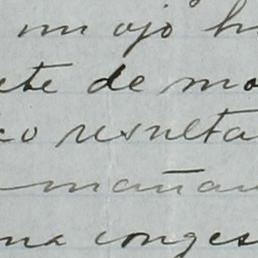 un ojo h
ete de mo
co resulta
mañan
na conges